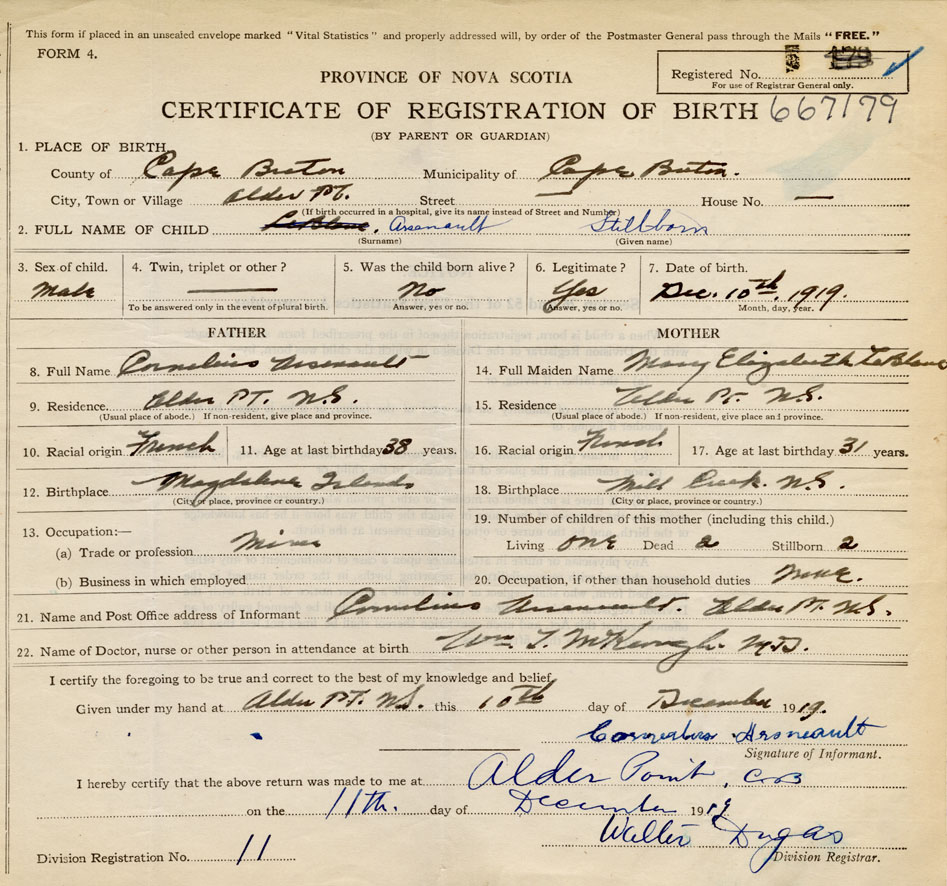 This form if placed in an unsealed envelope marked "Vital Statistics" and properly addressed will, by order of the Postmaster General pass through the Mails "FREE."
FORM 4.
Registered No. 179
For use of Registrar General only.
PROVINCE OF NOVA SCOTIA
CERTIFICATE OF REGISTRATION OF BIRTH 667179
(BY PARENT OR GUARDIAN)
1. PLACE OF BIRTH
County of Cape Breton Municipality of Cape Breton.
City, Town or Village Alder Pt. Street — House No. —
(If birth occurred in a hospital, give its name instead of Street and Number)
2. FULL NAME OF CHILD LeBlanc, Arsenault Stillborn
(Surname) (Given name)
3. Sex of child. 4. Twin, triplet or other? 5. Was the child born alive? 6. Legitimate? 7. Date of birth.
Male — No Yes Dec. 10th, 1919.
To be answered only in the event of plural birth. Answer, yes or no. Answer, yes or no. Month, day, year.
FATHER MOTHER
8. Full Name Cornelius Arsenault 14. Full Maiden Name Mary Elizabeth LeBlanc
9. Residence Alder Pt. N.S. 15. Residence Alder Pt. N.S.
(Usual place of abode.) If non-resident, give place and province. (Usual place of abode.) If non-resident, give place and province.
10. Racial origin French 11. Age at last birthday 38 years. 16. Racial origin French 17. Age at last birthday 31 years.
12. Birthplace Magdalene Islands 18. Birthplace Mill Creek. N.S.
(City or place, province or country.) (City or place, province or country.)
13. Occupation:— 19. Number of children of this mother (including this child.)
(a) Trade or profession Miner Living one Dead 2 Stillborn 2
(b) Business in which employed 20. Occupation, if other than household duties None.
21. Name and Post Office address of Informant Cornelius Arsenault. Alder Pt. N.S.
22. Name of Doctor, nurse or other person in attendance at birth Wm. McKeough. M.D.
I certify the foregoing to be true and correct to the best of my knowledge and belief.
Given under my hand at Alder Pt. N.S. this 10th day of December 1919.
Cornelius Arsneault
Signature of Informant.
I hereby certify that the above return was made to me at Alder Point, C.B
on the 11th. day of December 1919
Walter Dugas
Division Registration No. 11 Division Registrar.